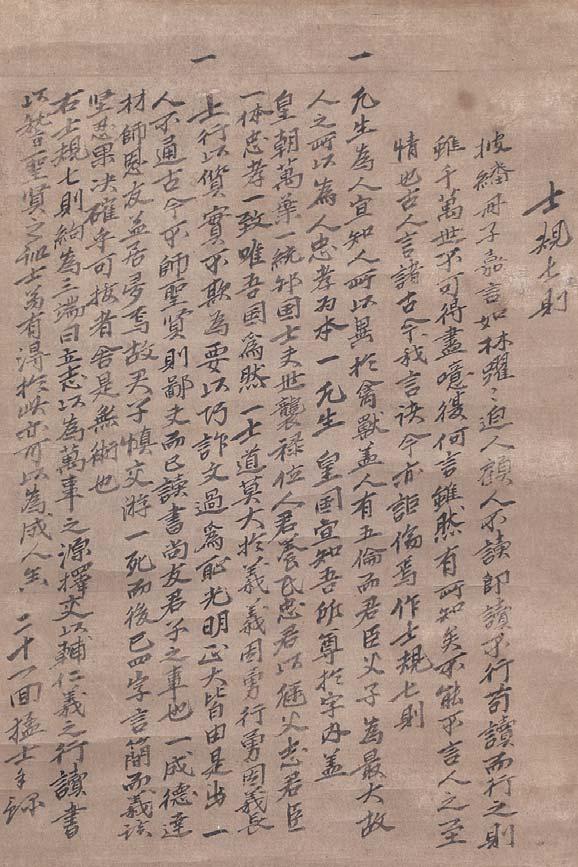 士規七則
披繙冊子嘉言如林躍〻迫人顧人不讀即讀不行苟讀而行之則
雖千萬世不可得盡噫復何言雖然有所知矣不能不言人之至
情也古人言諸古今我言諸今亦詎傷焉作士規七則
一 凡生為人宜知人所以異於禽獸蓋人有五倫而君臣父子為最大故
人之所以為人忠孝為本一凡生 皇國宜知吾所尊於宇内蓋
皇朝萬葉一統邦國士夫世襲禄位人君養民忠君以継父志君臣
一体忠孝一致唯吾國為然一士道莫大於義義因勇行勇因義長
一 士行以質實不欺為要以巧詐文過為恥光明正大皆由是出一
人不通古今不師聖賢則鄙夫而已讀書尚友君子之事也一成德達
材師恩友益居多焉故君子慎交游一死而後已四字言簡而義該
堅忍果决確乎可拔者舍是無術也
右士規七則約為三端曰立志以為萬事之源擇交以輔仁義之行讀書
以稽聖賢之訓士苟有得於此亦可以為成人矣 二十一回猛士手録